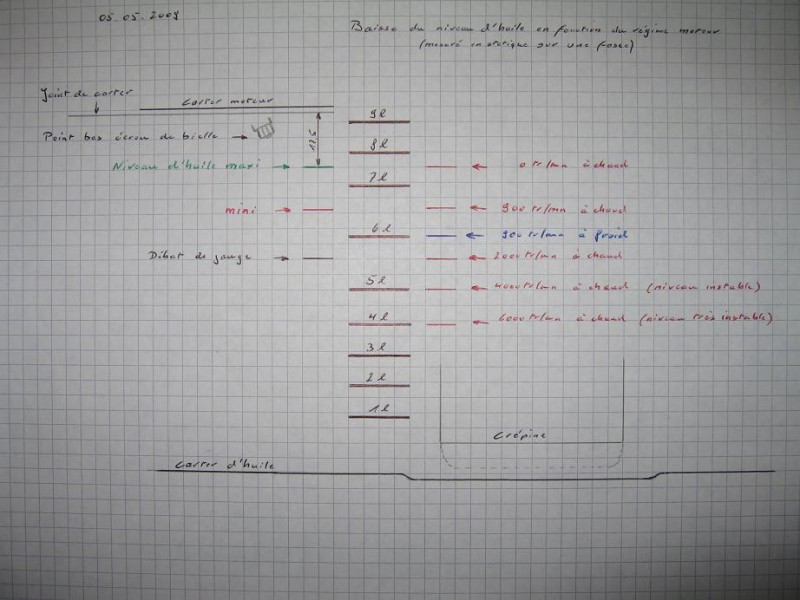 05.05.2009
Baisse du niveau d'huile en fonction du régime moteur
(mesuré en statique sur une fosse)
Joint de carter
Carter moteur
9 l
Point bas écrou de bielle
17,5
8 l
Niveau d'huile maxi
0 tr/mn à chaud
7 l
mini
900 tr/mn à chaud
6 l
900 tr/mn à froid
Début de jauge
2000 tr/mn à chaud
5 l
4000 tr/mn à chaud (niveau instable)
4 l
6000 tr/mn à chaud (niveau très instable)
3 l
2 l
1 l
Crépine
Carter d'huile